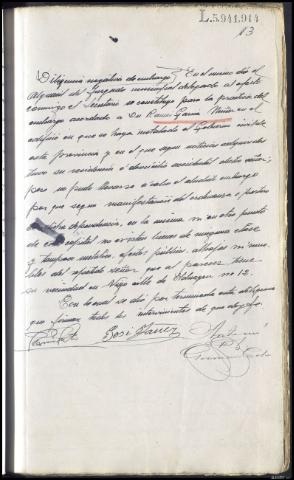 L.5.941.914
13
Diligencia negativa de embargo } En el mismo día el
Alguacil del Juzgado municipal delegado al efecto
conmigo el Secretario se constituyó para la practica del
embargo acordado a Dn Ramon Garcia Nuñez en el
edificio en que se haya instalado el Gobierno civil de
esta provincia y en el que segun noticias adquiridas
tuvo su residencia o domicilio accidental dicho señor;
pero no pudo llevarse a cabo el aludido embargo
por que segun manifestación del ordenanza o portero
de dicha dependencia, en la misma ni en otro punto
de esta capital no existen bienes de ninguna clase
y tampoco metalico, efectos publicos, alhajas ni mue
bles del repetido señor que al parecer tiene
su vecindad en Vigo calle de nº 12.
Con lo cual se dió por terminada esta diligencia
que firman todos los intervinientes de que doy fe.
José
Antonio